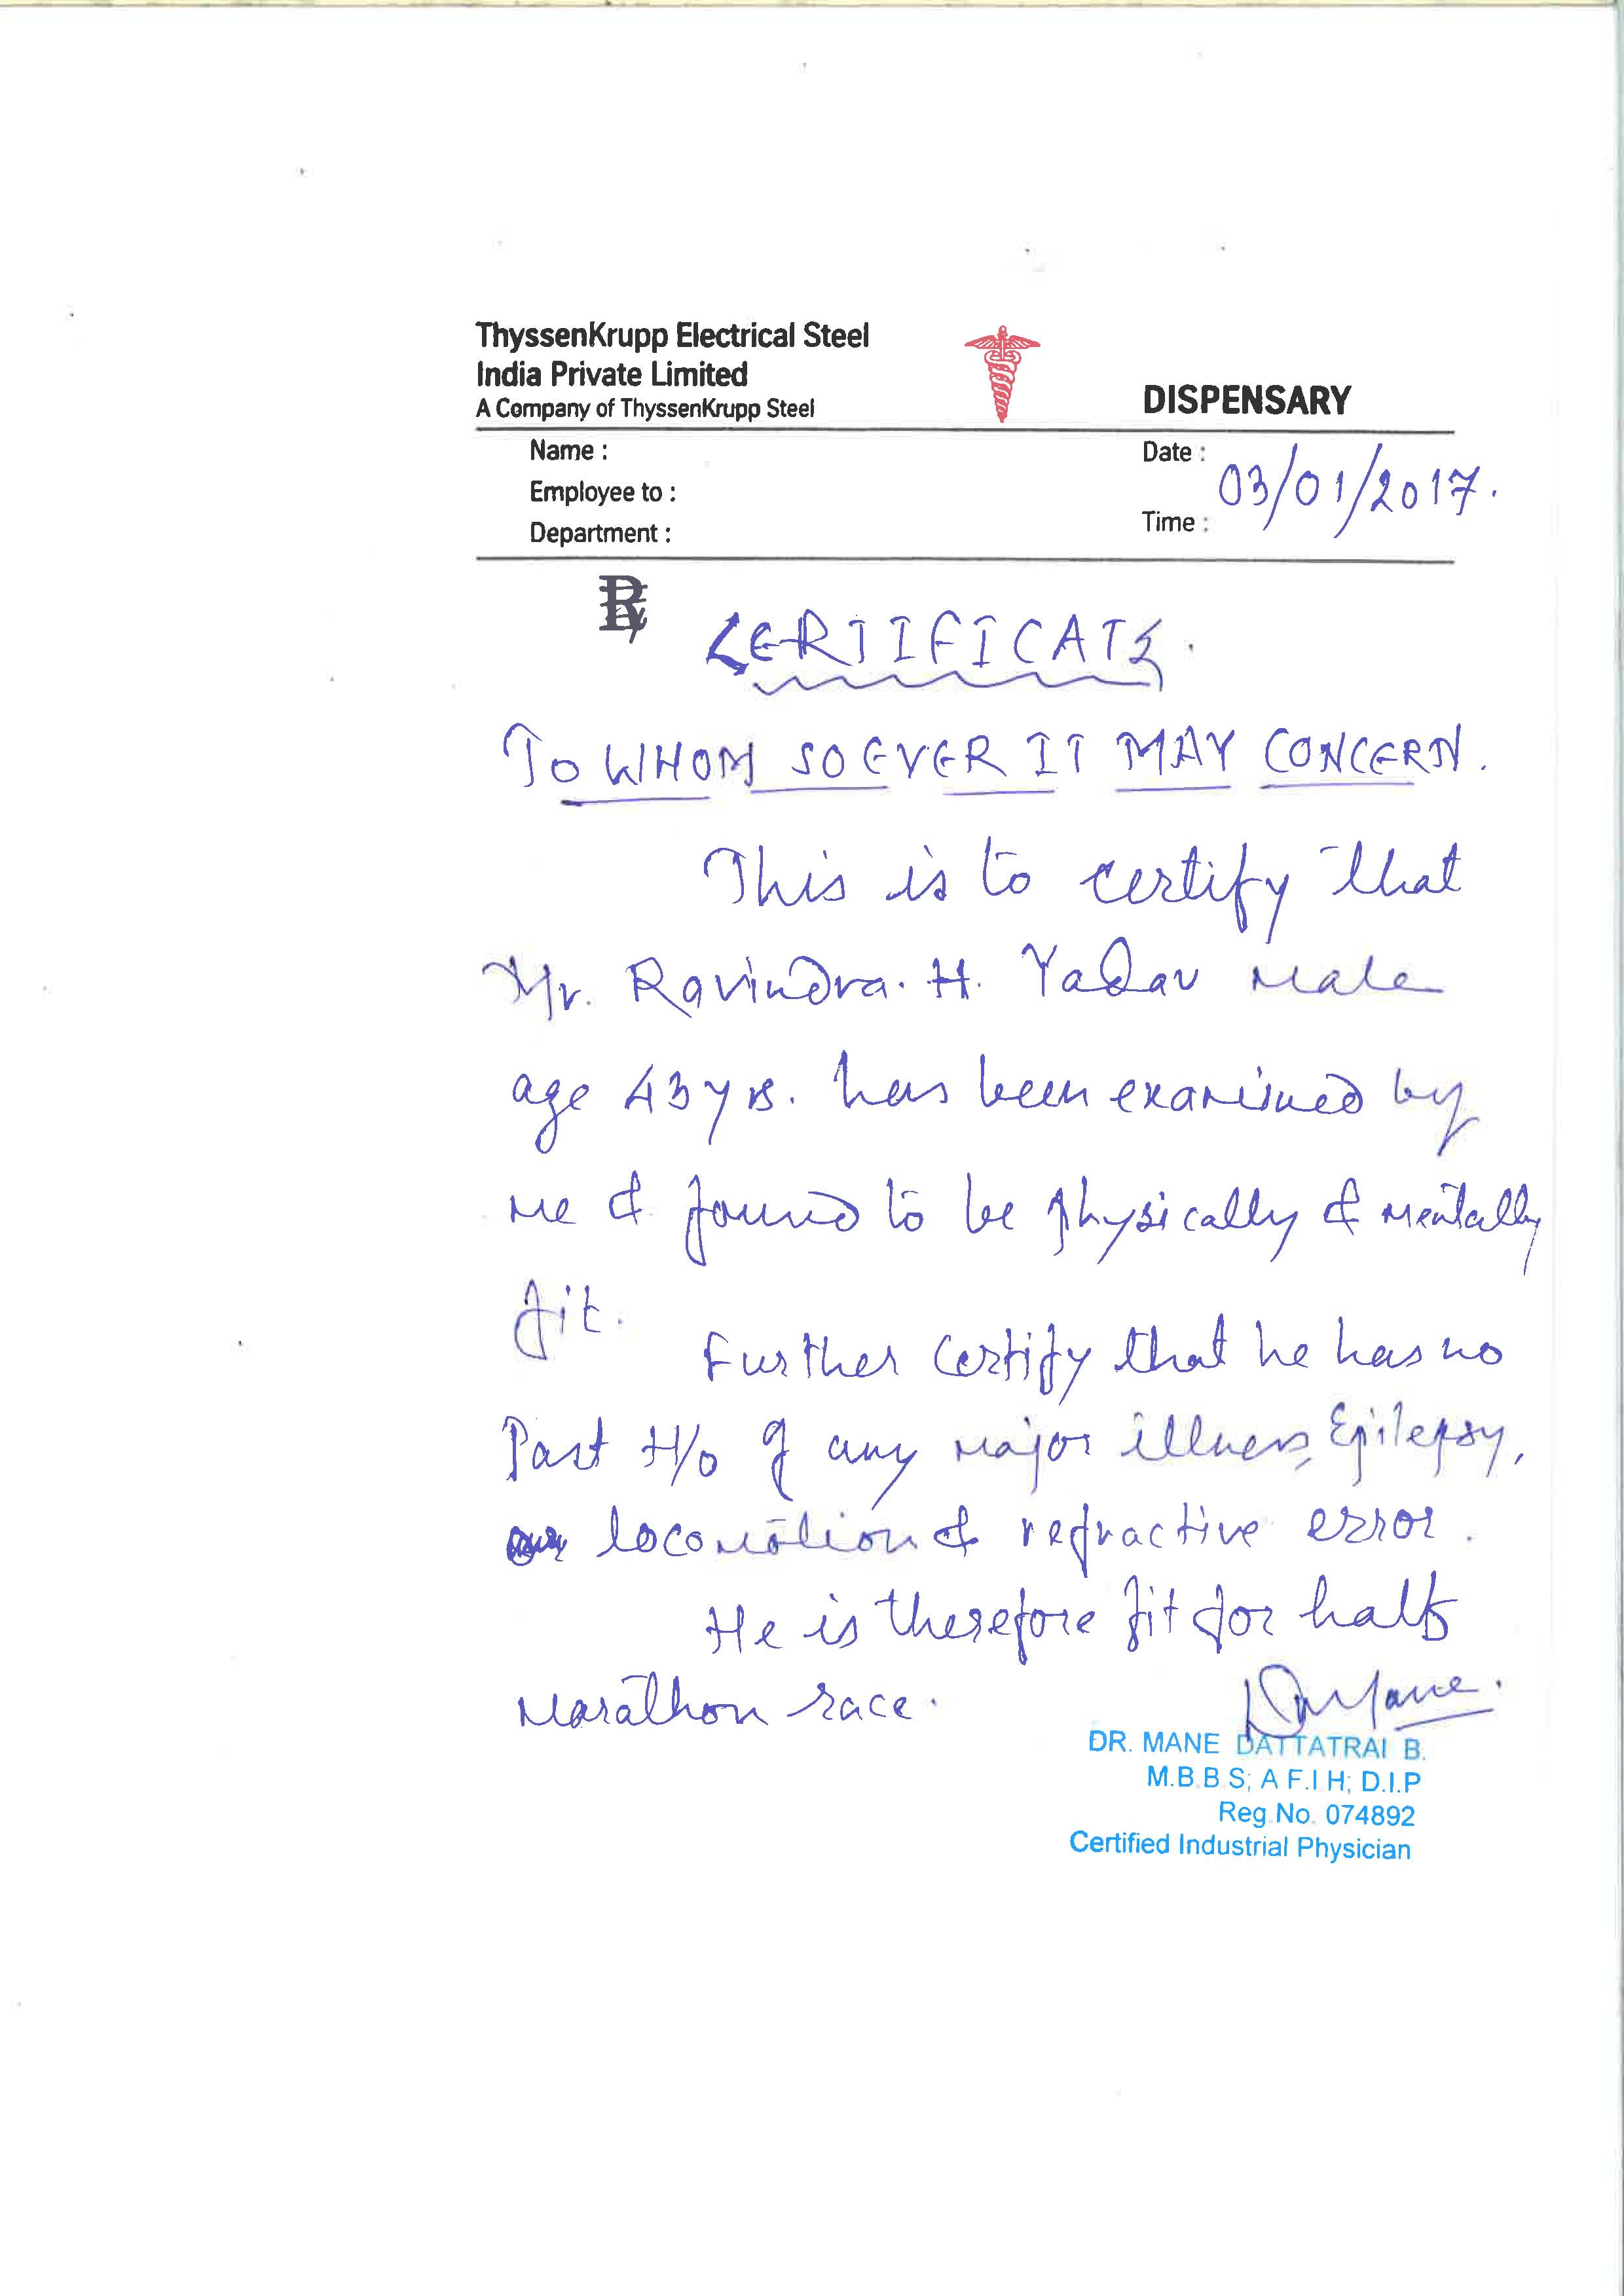 ThyssenKrupp Electrical Steel
India Private Limited
A Company of ThyssenKrupp Steel
DISPENSARY
Name :
Date : 03/01/2017.
Employee to :
Time :
Department :
Rx
CERTIFICATE.
TO WHOM SO EVER IT MAY CONCERN.
This is to certify that
Mr. Ravindra. H. Yadav male
age 43 yrs. has been examined by
me & found to be physically & mentally
fit.
Further certify that he has no
Past H/o of any major illness, Epilepsy,
locomotion & refractive error.
He is therefore fit for half
marathon race.
DMane.
DR. MANE DATTATRAI B.
M.B.B.S; A F.I H; D.I.P
Reg.No. 074892
Certified Industrial Physician